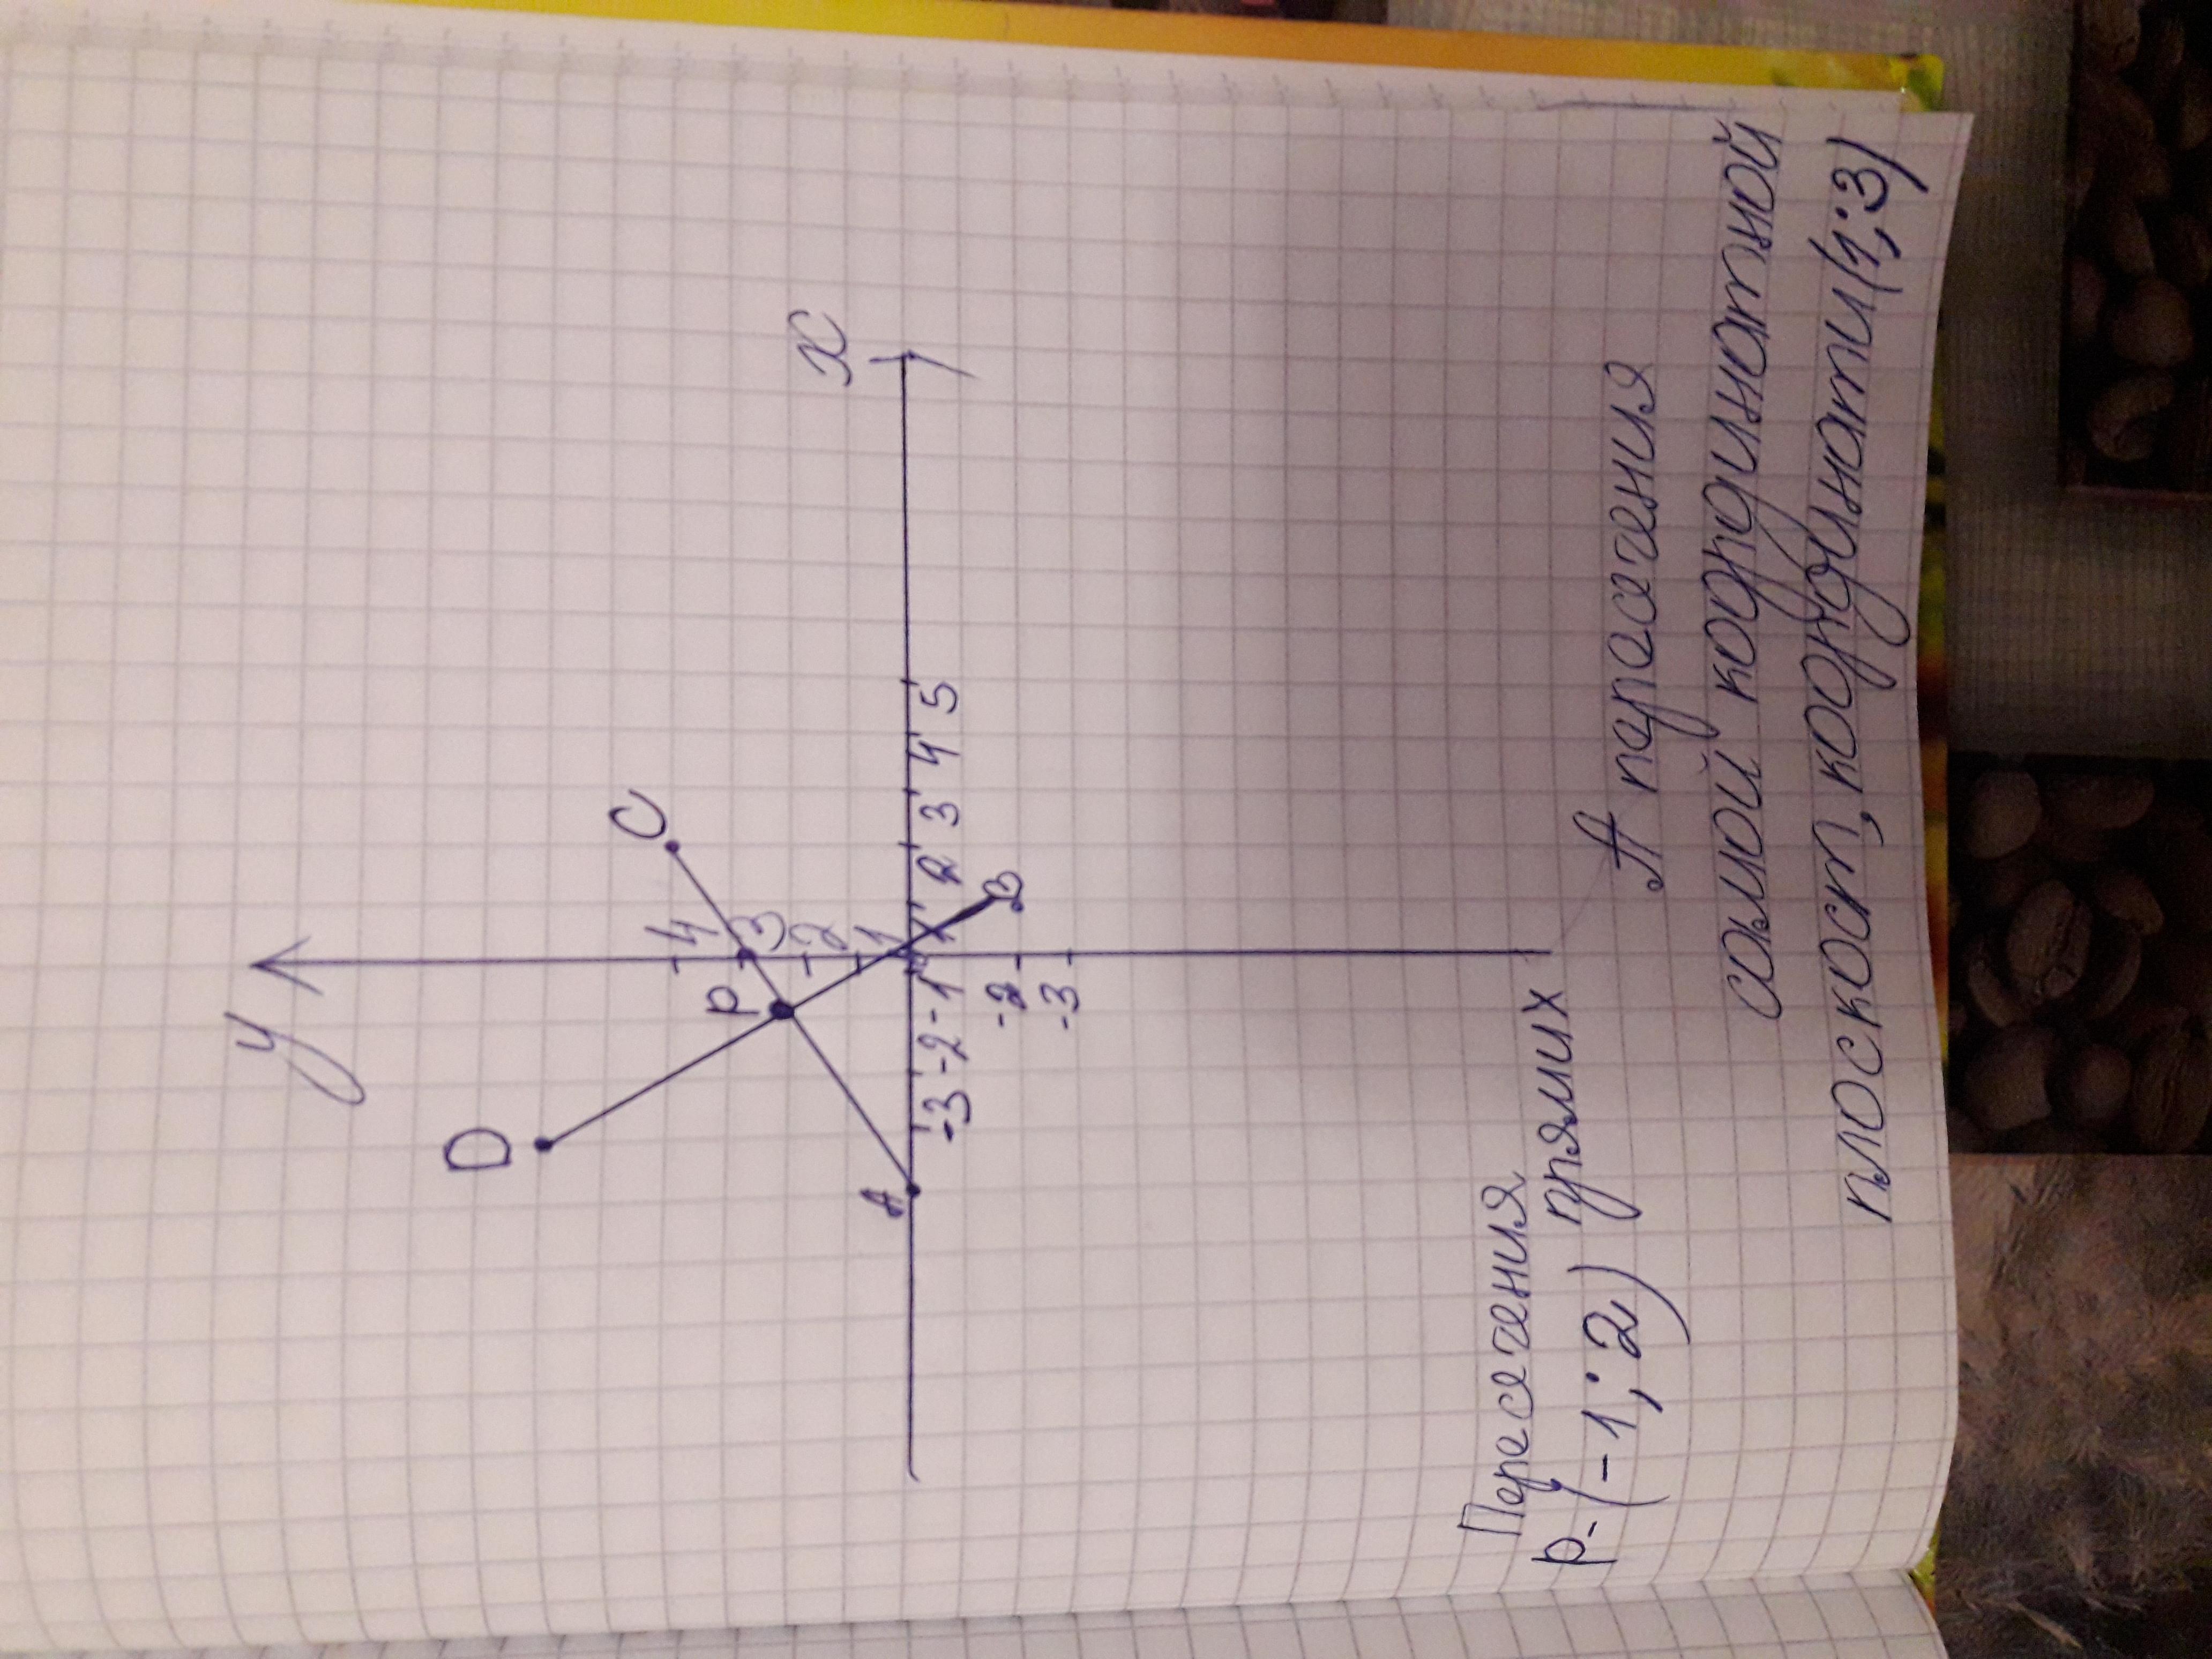 y
D
C
4
P
3
2
x
1
A
-3 -2 -1 1 2 3 4 5
B
-2
-3
Пересечения
р-(-1; 2) прямих
А пересечения
самой координатной
плоскост, координати(1; 3)